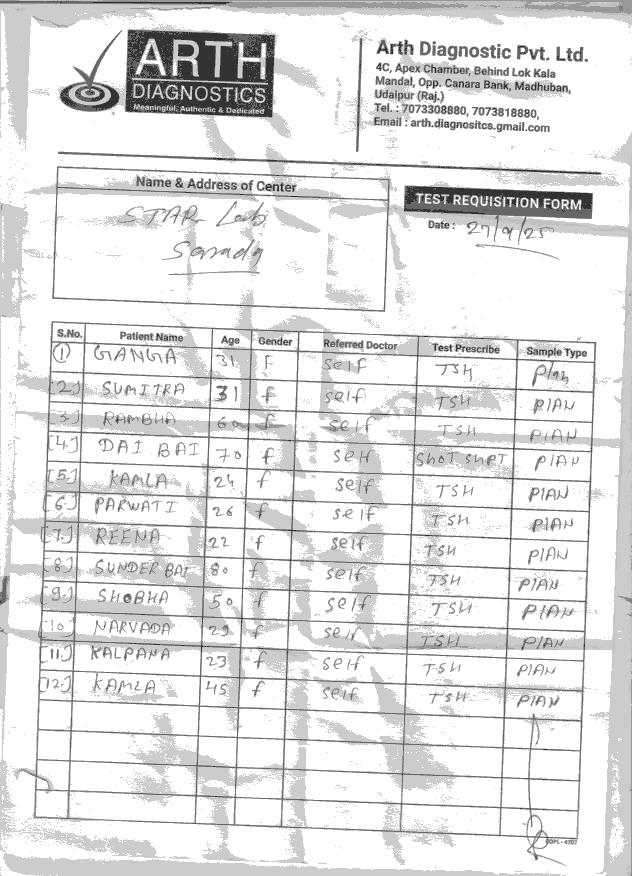 ARTH
DIAGNOSTICS
Meaningful, Authentic & Dedicated
Arth Diagnostic Pvt. Ltd.
4C, Apex Chamber, Behind Lok Kala
Mandal, Opp. Canara Bank, Madhuban,
Udaipur (Raj.)
Tel. : 7073308880, 7073818880,
Email : arth.diagnositcs.gmail.com
Name & Address of Center
STAR Lab
Sarada
TEST REQUISITION FORM
Date : 27/9/25
S.No. Patient Name Age Gender Referred Doctor Test Prescribe Sample Type
(1) GANGA 31 f self TSH Plan
[2.] SUMITRA 31 f self TSH PIAN
[3.] RAMBHA 60 f self TSH PIAN
[4.] DAI BAI 70 f self SHOT SHPT PIAN
[5.] KAMLA 24 f self TSH PIAN
[6.] PARWATI 26 f self TSH PIAN
[7.] REENA 22 f self TSH PIAN
[8.] SUNDER BAI 80 f self TSH PIAN
[9.] SHOBHA 50 f self TSH PIAN
[10.] NARVADA 29 f self TSH PIAN
[11.] KALPANA 23 f self TSH PIAN
[12.] KAMLA 45 f self TSH PIAN